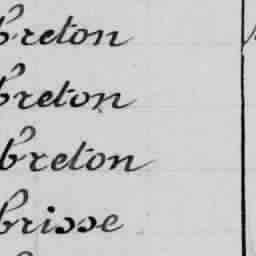 breton
breton
breton
brisse